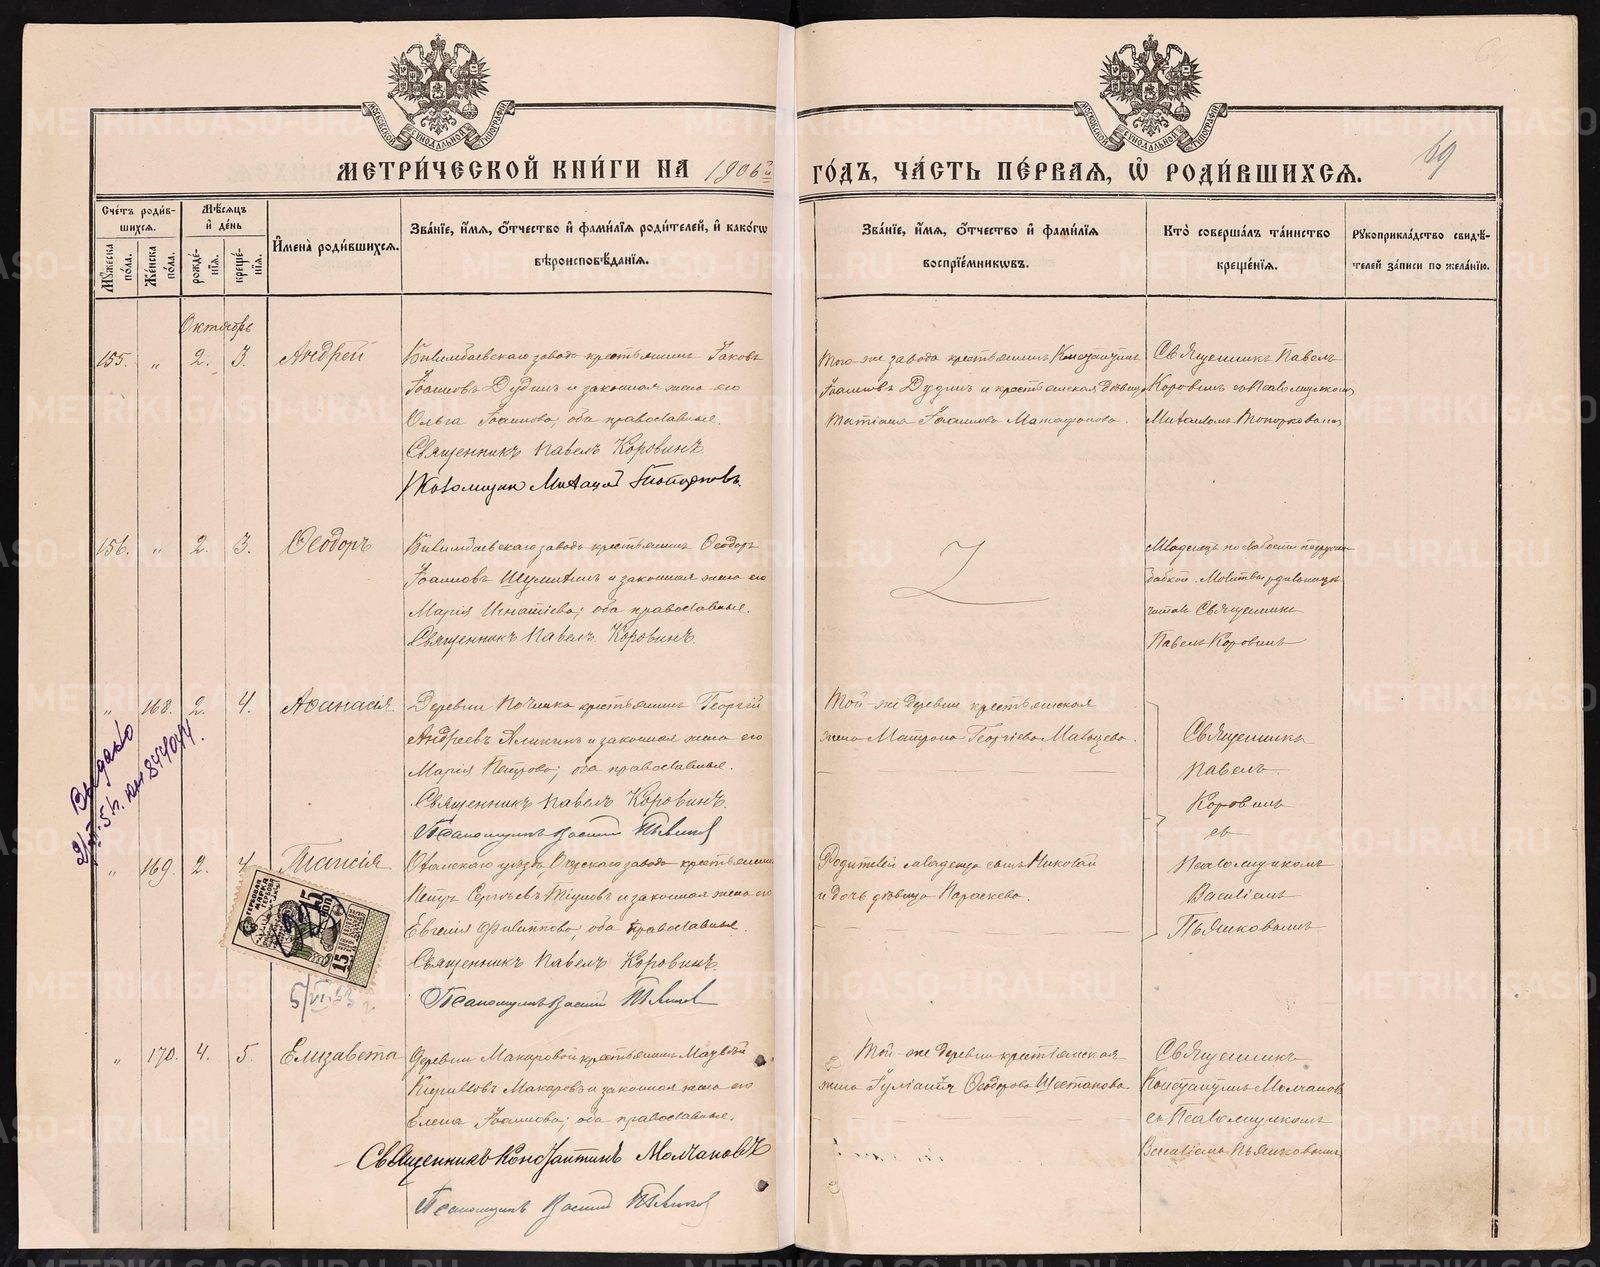 МЕТРИ́ЧЕСКОЙ КНИ́ГИ НА 1906й
ГО́ДЪ, ЧА́СТЬ ПЕ́РВАѦ, Ѽ РОДИ́ВШИХСѦ.
69
МОСКОВСКОЙ СѴНОДАЛЬНОЙ ТИПОГРАФІИ
МОСКОВСКОЙ СѴНОДАЛЬНОЙ ТИПОГРАФІИ
Сче́тъ роди́вшихсѧ.
Мꙋ́жеска по́ла.
Же́нска по́ла.
Мѣ́сѧцъ и҆ де́нь
рожде́нїѧ.
креще́нїѧ.
И҆мена̀ роди́вшихсѧ.
Зва́нїе, и҆́мѧ, ѻ҆́тчество и҆ фами́лїѧ роди́телей, и҆ како́гѡ
вѣроисповѣ́данїѧ.
Зва́нїе, и҆́мѧ, ѻ҆́тчество и҆ фами́лїѧ
воспрїе́мникѡвъ.
Кто̀ соверша́лъ та́инство
креще́нїѧ.
Рꙋкоприкла́дство свидѣ́-
телей за́писи по жела́нїю.
Октябрь
155. " 2. 3. Андрей
Билимбаевскаго завода крестьянинъ Іаковъ
Іоанновъ Дудинъ и законная жена его
Ольга Іоаннова; оба православные.
Священникъ Павелъ Коровинъ.
Псаломщик Михаил Топорковъ.
Того-же завода крестьянинъ Константинъ
Іоанновъ Дудинъ и крестьянская дѣвица
Татіана Іоаннова
Священникъ Павелъ
Коровинъ съ Псаломщикомъ
Михаиломъ Топорковымъ
156. " 2. 3. Ѳеодоръ
Билимбаевскаго завода крестьянинъ Ѳеодоръ
Іоанновъ и законная жена его
Марія Игнатіева; оба православные.
Священникъ Павелъ Коровинъ.
Младенецъ по слабости погруженъ
бабкой. Молитвы родильницѣ
читалъ Священникъ
Павелъ Коровинъ
" 168. 2. 4. Аѳанасія
Деревни Починка крестьянинъ Георгій
Андреевъ Аликинъ и законная жена его
Марія Петрова; оба православные.
Священникъ Павелъ Коровинъ.
Псаломщикъ Василій Пьянков
Той-же деревни крестьянская
жена Матрона Георгіева
Священникъ
Павелъ
Коровинъ
съ
Псаломщикомъ
Василіемъ
Пьянковымъ
Выдано
" 169. 2. 4. Таисія
Оханскаго уѣзда, Очерскаго завода крестьянинъ
Петръ Сергѣевъ и законная жена его
Евгенія Филиппова; оба православные.
Священникъ Павелъ Коровинъ.
Псаломщикъ Василій Пьянков
Родителей младенца сынъ Николай
и дочь дѣвица Параскева.
МАРКА
15
15
" 170. 4. 5. Елизавета
Деревни Макаровой крестьянинъ Матвѣй
Кирилловъ Макаровъ и законная жена его
Елена Іоаннова; оба православные.
Священникъ Константинъ Молчановъ
Псаломщикъ Василій Пьянков
Той-же деревни крестьянская
жена Іуліанія Ѳеодорова
Священникъ
Константинъ Молчановъ
съ Псаломщикомъ
Василіемъ Пьянковымъ
METRIKI.GASO-URAL.RU